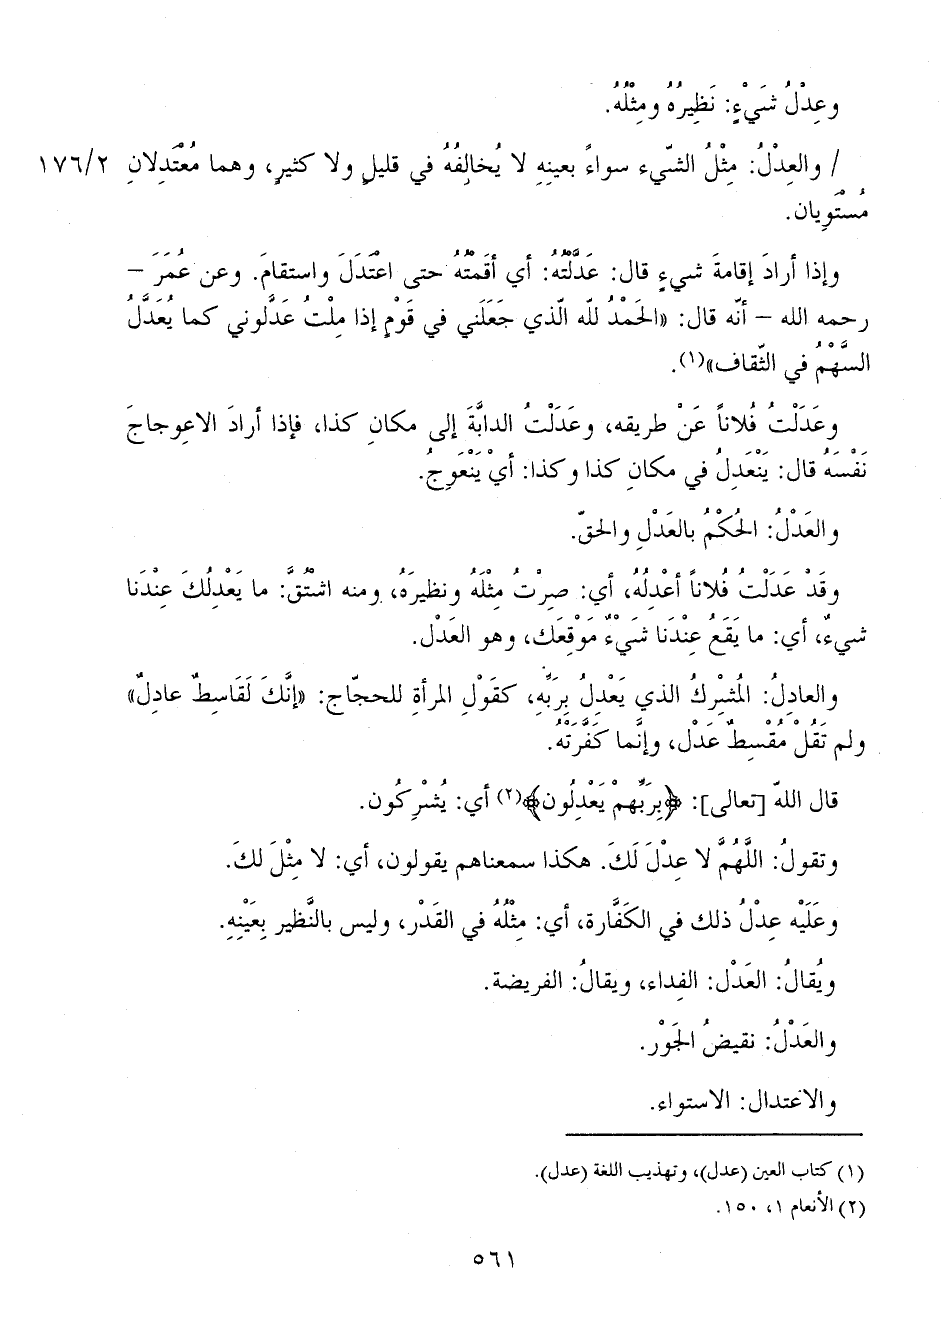 وعِدْلُ شَيْءٍ: نَظِيرُهُ ومِثْلُهُ.
/ والعِدْلُ: مِثْلُ الشّيء سواءً بعينِهِ لا يُخالِفُهُ في قليلٍ ولا كثيرٍ، وهما مُعْتَدِلانِ ١٧٦/٢
مُستَوِيان.
وإذا أرادَ إقامةَ شيءٍ قال: عَدَّلْتُهُ: أي أقَمْتُهُ حتى اعْتَدَلَ واستقامَ. وعن عُمَرَ –
رحمه الله – أنّه قال: «الحَمْدُ للّه الّذي جَعَلَني في قَوْمٍ إذا مِلْتُ عَدَّلُوني كما يُعَدَّلُ
السَّهْمُ في الثّقاف»(١).
وعَدَلْتُ فُلاناً عَنْ طريقه، وعَدَلْتُ الدابَّةَ إلى مكانِ كذا، فإذا أرادَ الاعوجاجَ
نَفْسَهُ قال: يَنْعَدِلُ في مكانِ كذا وكذا: أيْ يَنْعَوِجُ.
والعَدْلُ: الحُكْمُ بالعَدْلِ والحقّ.
وقَدْ عَدَلْتُ فُلاناً أعْدِلُهُ، أي: صِرْتُ مِثْلَهُ ونظيرَهُ، ومنه اشْتُقَّ: ما يَعْدِلُكَ عِنْدَنا
شيءٌ، أي: ما يَقَعُ عِنْدَنا شَيْءٌ مَوْقِعَك، وهو العَدْل.
والعادِلُ: المُشْرِكُ الذي يَعْدِلُ بِرَبِّه، كقَوْلِ المرأةِ للحجّاج: «إنَّكَ لَقَاسِطٌ عادِلٌ»
ولم تَقُلْ مُقْسِطٌ عَدْل، وإنَّما كَفَّرَتْهُ.
قال اللهّ [تعالى]: ﴿بِرَبِّهِمْ يَعْدِلُون﴾(٢) أي: يُشْرِكُون.
وتقولُ: اللَّهُمَّ لا عِدْلَ لَكَ. هكذا سمعناهم يقولون، أي: لا مِثْلَ لكَ.
وعَلَيْه عِدْلُ ذلك في الكَفَّارة، أي: مِثْلُهُ في القَدْر، وليس بالنَّظير بِعَيْنِهِ.
ويُقالُ: العَدْل: الفِداء، ويقالُ: الفريضة.
والعَدْلُ: نقيضُ الجَوْر.
والاعْتدال: الاستواء.
(١) كتاب العين (عدل)، وتهذيب اللغة (عدل).
(٢) الأنعام ١، ١٥٠.
٥٦١